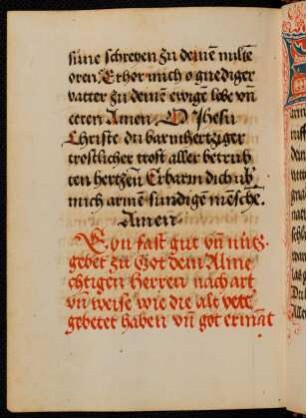 süne schreyen zu deinē miltē
oren Erhor mich o gnediger
vatter zu deinē ewigē lebē vnd
eeren Amen O Jhesu
Christe du barmhertziger
trostlicher trost aller betrub
ten hertzen Erbarm dich vb'
mich armē sundigen mēschē.
Amen
Ein fast gut vn̄ nutz
gebet zu Got dem Alme
chtigen herren nach art
vn̄ weise wie die alt vett
gebetet haben vn̄ got ermāt